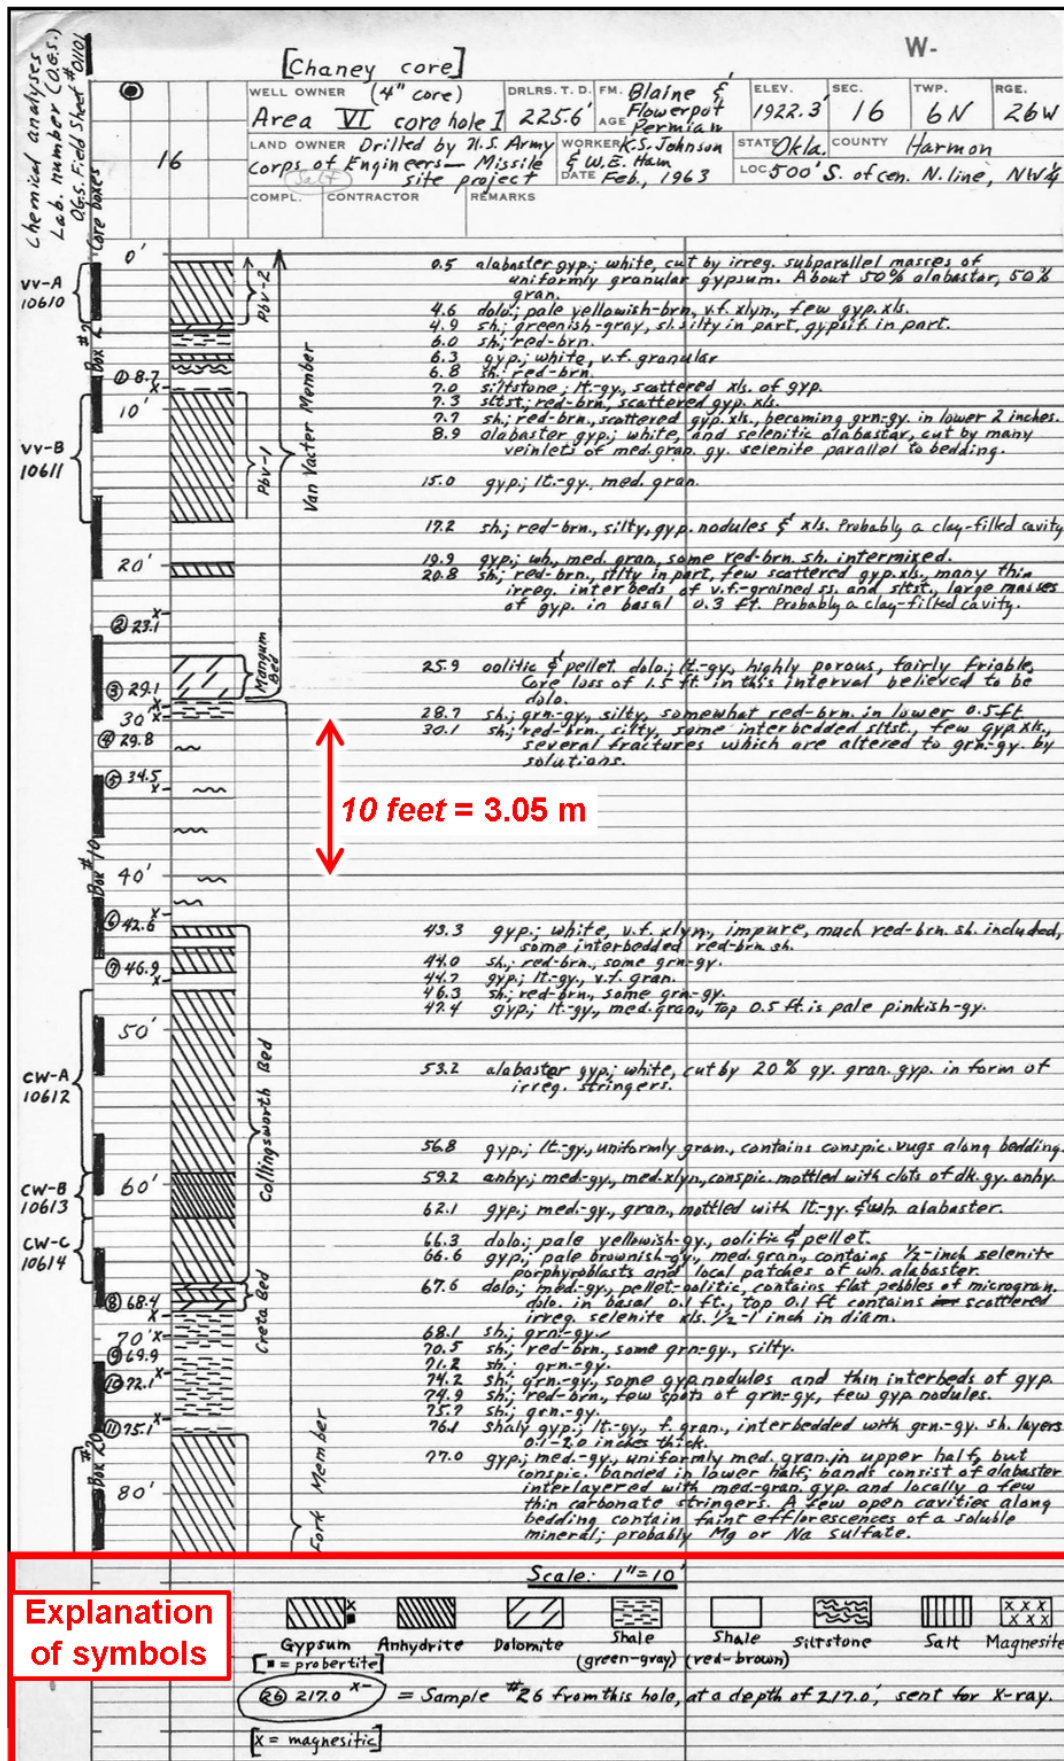 W-
[Chaney core]
Chemical analyses
Lab. number (O.G.S.)
O.G.S. Field Sheet #01101
Core boxes
16
WELL OWNER (4" core)
Area VI core hole I
DRLRS. T. D.
225.6'
FM. Blaine &
Flowerpot
AGE Permian
ELEV.
1922.3'
SEC.
16
TWP.
6N
RGE.
26W
LAND OWNER Drilled by U.S. Army
Corps of Engineers — Missile
Salt site project
WORKER K.S. Johnson
& W.E. Ham
DATE Feb., 1963
STATE Okla.
COUNTY Harmon
LOC 500' S. of cen. N. line, NW¼
COMPL.
CONTRACTOR
REMARKS
0'
vv-A
10610
Pbv-2
0.5 alabaster gyp; white, cut by irreg. subparallel masses of
uniformly granular gypsum. About 50% alabaster, 50%
gran.
4.6 dolo.; pale yellowish-brn, v.f. xlyn., few gyp. xls.
4.9 sh.; greenish-gray, sl. silty in part, gypsif. in part.
6.0 sh.; red-brn.
6.3 gyp.; white, v.f. granular
6.8 sh.; red-brn.
7.0 siltstone; lt.-gy., scattered xls. of gyp.
7.3 sltst.; red-brn., scattered gyp. xls.
7.7 sh.; red-brn., scattered gyp. xls., becoming grn-gy. in lower 2 inches.
8.9 alabaster gyp.; white, and selenitic alabaster, cut by many
veinlets of med. gran. gy. selenite parallel to bedding.
① 8.7 x
10'
vv-B
10611
Pbv-1
Van Vacter Member
15.0 gyp.; lt.-gy., med. gran.
17.2 sh.; red-brn., silty, gyp. nodules & xls. Probably a clay-filled cavity
19.9 gyp.; wh., med. gran., some red-brn. sh. intermixed.
20'
20.8 sh.; red-brn., silty in part, few scattered gyp. xls., many thin
irreg. interbeds of v.f.-grained ss. and sltst., large masses
of gyp. in basal 0.3 ft. Probably a clay-filled cavity.
② 23.1 x
Mangum
Bed
25.9 oolitic & pellet dolo.; lt.-gy., highly porous, fairly friable,
Core loss of 1.5 ft. in this interval believed to be
dolo.
③ 29.1
28.7 sh.; grn-gy., silty, somewhat red-brn. in lower 0.5 ft.
30' x
30.1 sh.; red-brn., silty, some interbedded sltst., few gyp. xls.,
several fractures which are altered to grn-gy. by
solutions.
④ 29.8
⑤ 34.5 x
10 feet = 3.05 m
Box #10
40'
⑥ 42.6 x
43.3 gyp.; white, v.f. xlyn., impure, much red-brn. sh. included,
some interbedded red-brn. sh.
44.0 sh.; red-brn., some grn-gy.
44.7 gyp.; lt.-gy., v.f. gran.
⑦ 46.9 x
46.3 sh.; red-brn., some grn-gy.
47.4 gyp.; lt.-gy., med. gran., Top 0.5 ft. is pale pinkish-gy.
50'
CW-A
10612
Collingsworth Bed
53.2 alabaster gyp.; white, cut by 20% gy. gran. gyp. in form of
irreg. stringers.
56.8 gyp.; lt.-gy., uniformly gran., contains conspic. vugs along bedding.
CW-B
10613
60'
59.2 anhy.; med.-gy., med. xlyn., conspic. mottled with clots of dk. gy. anhy.
62.1 gyp.; med.-gy., gran., mottled with lt.-gy. & wh. alabaster.
CW-C
10614
66.3 dolo.; pale yellowish-gy., oolitic & pellet.
66.6 gyp.; pale brownish-gy., med. gran., contains ½-inch selenite
porphyroblasts and local patches of wh. alabaster.
67.6 dolo.; med.-gy., pellet-oolitic, contains flat pebbles of microgran.
dolo. in basal 0.1 ft., top 0.1 ft contains scattered
irreg. selenite xls. ½-1 inch in diam.
Creta Bed
⑧ 68.4 x
68.1 sh.; grn-gy.
70' x
70.5 sh.; red-brn., some grn-gy., silty.
⑨ 69.9
71.2 sh.; grn.-gy.
⑩ 72.1 x
74.2 sh.; grn.-gy., some gyp. nodules and thin interbeds of gyp.
74.9 sh.; red-brn., few spots of grn-gy., few gyp. nodules.
75.7 sh.; grn.-gy.
⑪ 75.1 x
76.1 shaly gyp.; lt.-gy., f. gran., interbedded with grn.-gy. sh. layers
0.1-2.0 inches thick.
Box #20
77.0 gyp.; med.-gy., uniformly med. gran. in upper half, but
conspic. banded in lower half; bands consist of alabaster
interlayered with med.-gran. gyp. and locally a few
thin carbonate stringers. A few open cavities along
bedding contain faint efflorescences of a soluble
mineral; probably Mg or Na sulfate.
80'
Fork Member
Scale: 1"=10'
Explanation
of symbols
Gypsum
[▪ = probertite]
Anhydrite
Dolomite
Shale
(green-gray)
Shale
(red-brown)
Siltstone
Salt
Magnesite
㉖ 217.0 x- = Sample #26 from this hole, at a depth of 217.0', sent for X-ray.
[x = magnesitic]